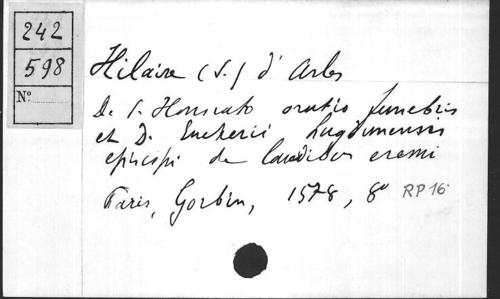 242
598
N°
Hilaire (S.) d'Arles
De S. Honorato oratio funebris
et D. Eucherii Lugdunensis
episcopi de laudibus eremi
Paris, Gorbin, 1578, 8° RP 16.